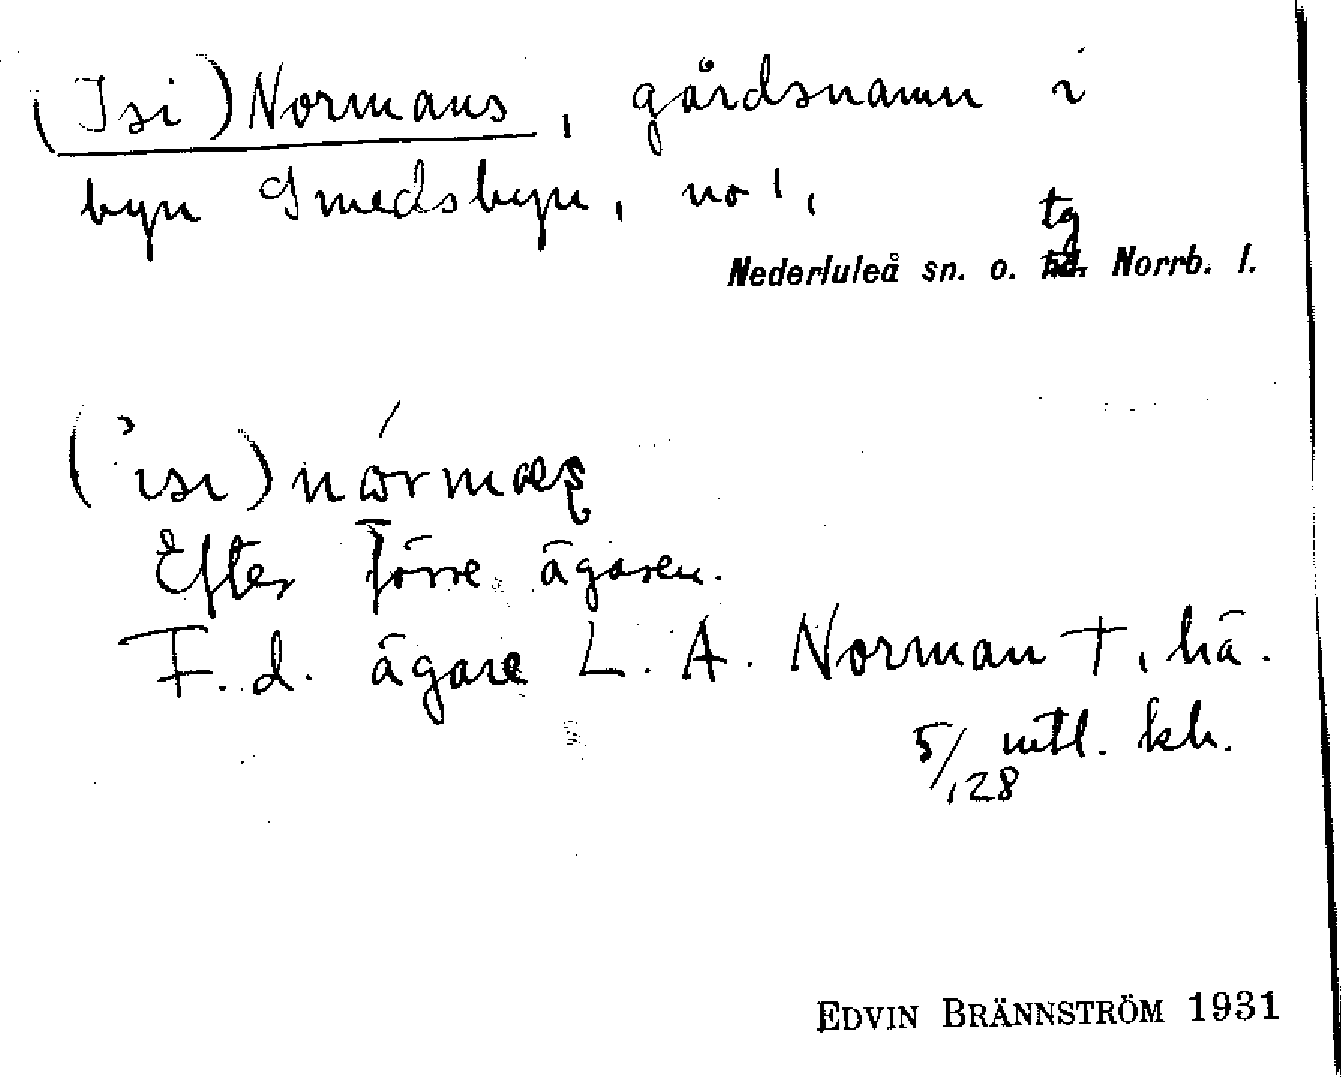 (Isi) Normans, gårdsnamn i
byn Smedsbyn, no 1,
Nederluleå sn. o. tg Norrb. l.
Efter förre ägaren.
F.d. ägare L. A. Norman †, hä.
5/128 mtl. kh.
EDVIN BRÄNNSTRÖM 1931